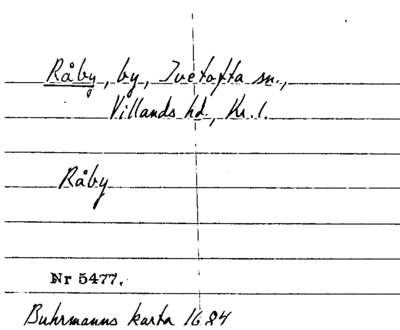 Råby, by, Ivetofta sn.,
Villands hd., Kr. l.
Råby
Nr 5477.
Buhrmanns karta 1684